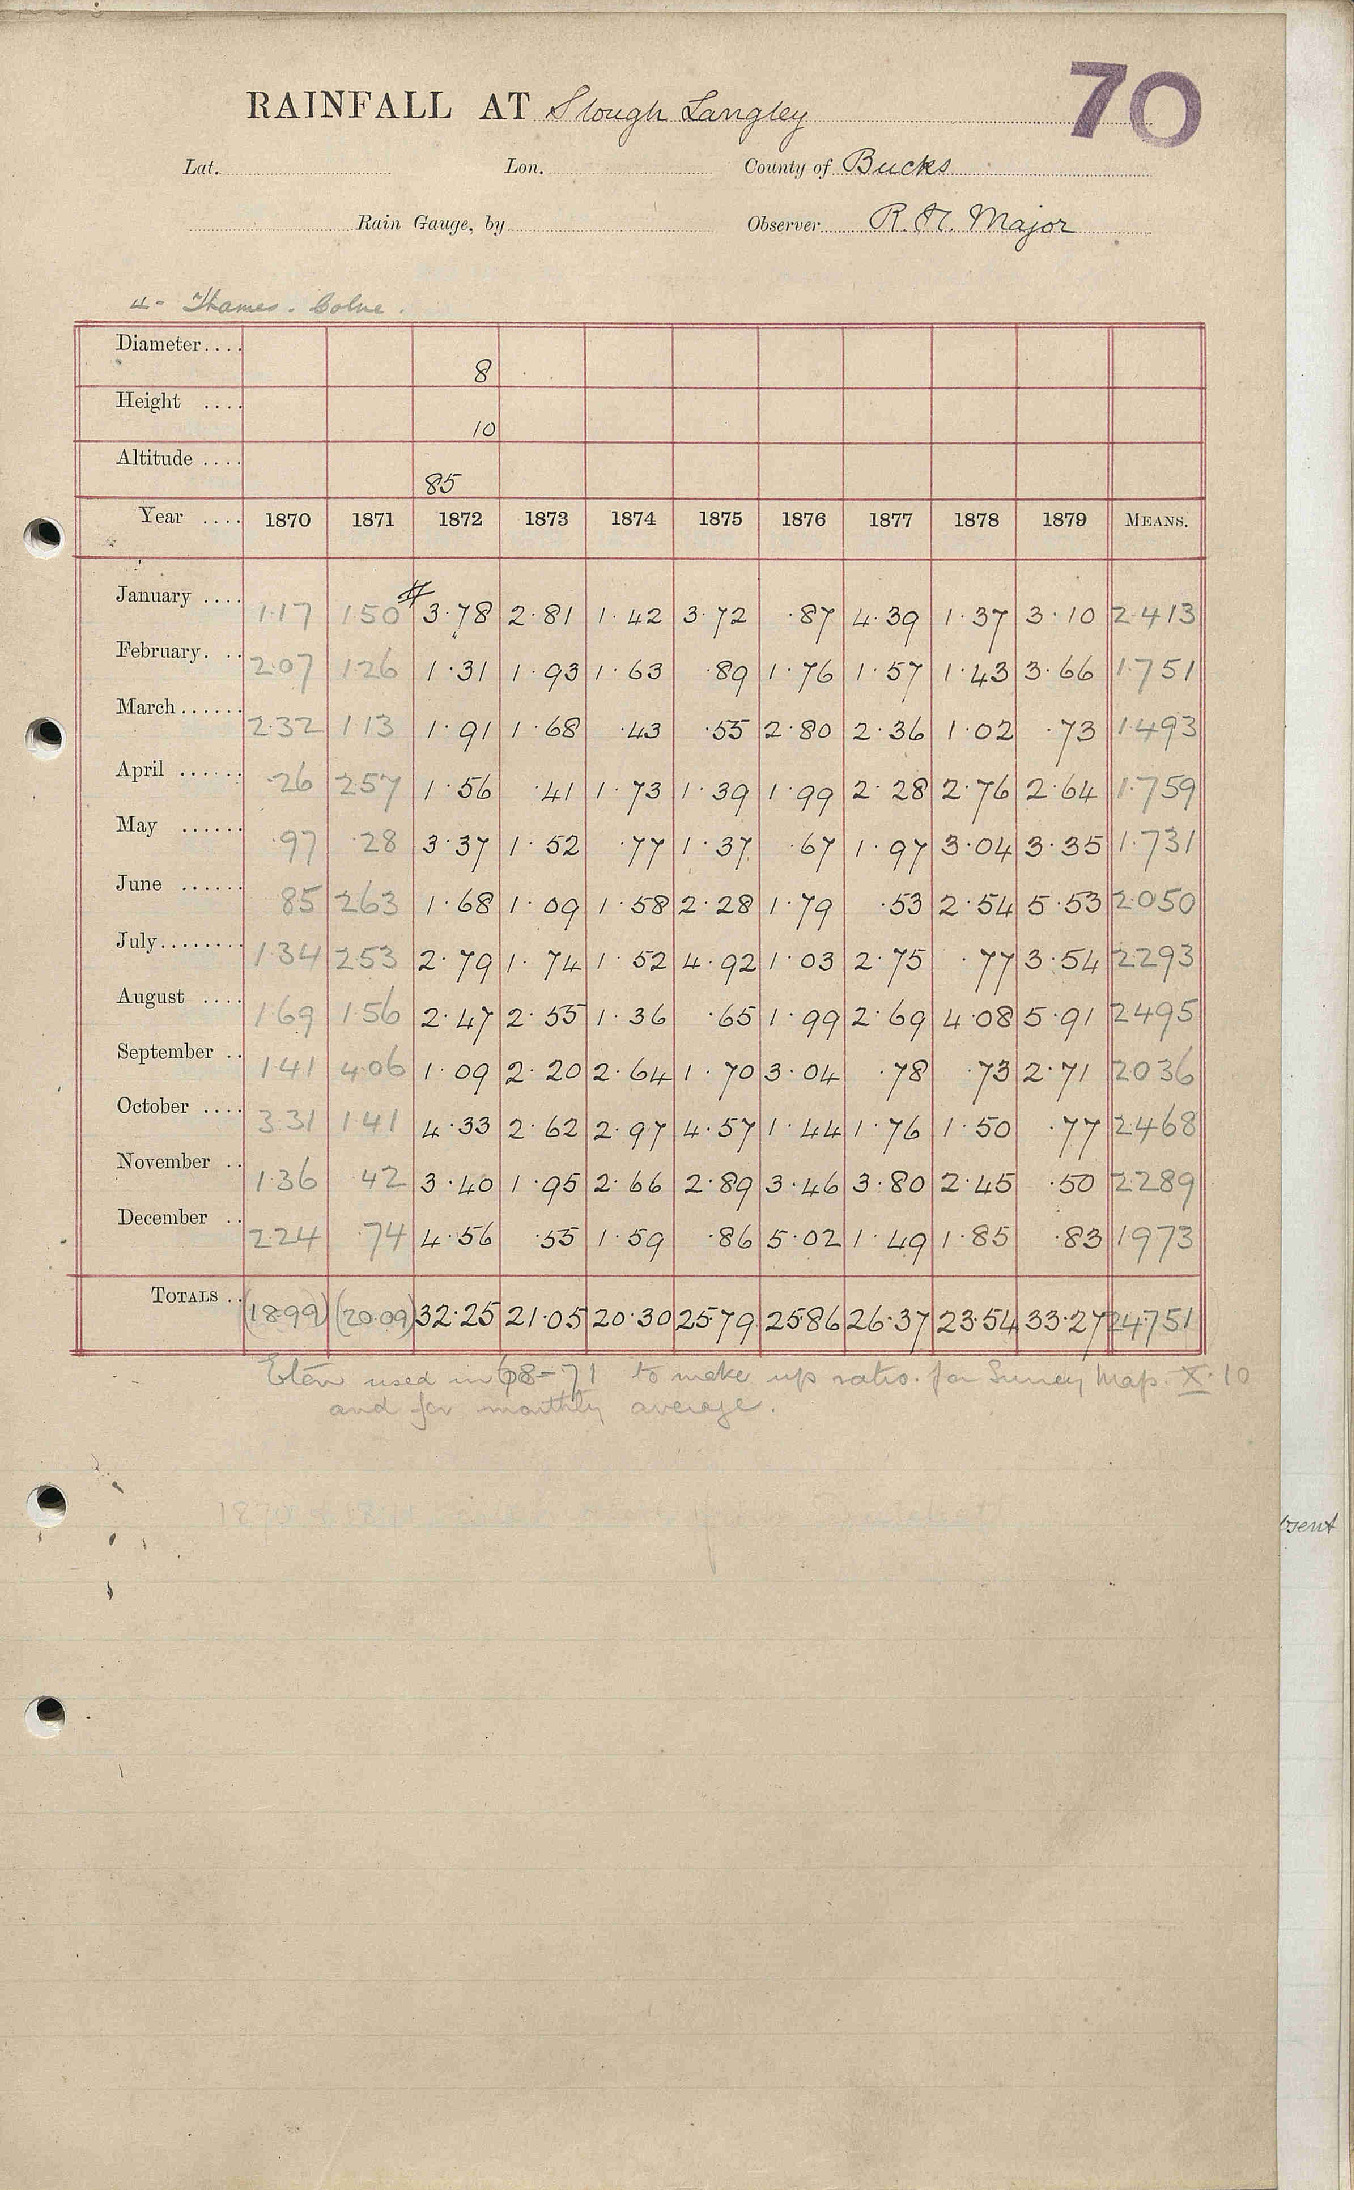 70
RAINFALL AT Slough Langley
Lat. Lon. County of Bucks
Rain Gauge, by Observer R. H. Major
4 - Thames. Colne.
Diameter.... 8
Height .... 10
Altitude .... 85
Year .... 1870 1871 1872 1873 1874 1875 1876 1877 1878 1879 MEANS.
January .... 1.17 1.50 # 3.78 2.81 1.42 3.72 .87 4.39 1.37 3.10 2.413
February. .. 2.07 1.26 1.31 1.93 1.63 .89 1.76 1.57 1.43 3.66 1.751
March...... 2.32 1.13 1.91 1.68 .43 .55 2.80 2.36 1.02 .73 1.493
April ...... .26 2.57 1.56 .41 1.73 1.39 1.99 2.28 2.76 2.64 1.759
May ...... .97 .28 3.37 1.52 .77 1.37 .67 1.97 3.04 3.35 1.731
June ...... 85 2.63 1.68 1.09 1.58 2.28 1.79 .53 2.54 5.53 2.050
July........ 1.34 2.53 2.79 1.74 1.52 4.92 1.03 2.75 .77 3.54 2.293
August .... 1.69 1.56 2.47 2.55 1.36 .65 1.99 2.69 4.08 5.91 2.495
September .. 1.41 4.06 1.09 2.20 2.64 1.70 3.04 .78 .73 2.71 2.036
October .... 3.31 1.41 4.33 2.62 2.97 4.57 1.44 1.76 1.50 .77 2.468
November .. 1.36 42 3.40 1.95 2.66 2.89 3.46 3.80 2.45 .50 2.289
December .. 2.24 .74 4.56 .55 1.59 .86 5.02 1.49 1.85 .83 1.973
TOTALS .. (18.99) (20.09) 32.25 21.05 20.30 25.79 25.86 26.37 23.54 33.27 24.751
Eton used in 68-71 to make up ratio for Surrey Map. X.10
and for monthly average.